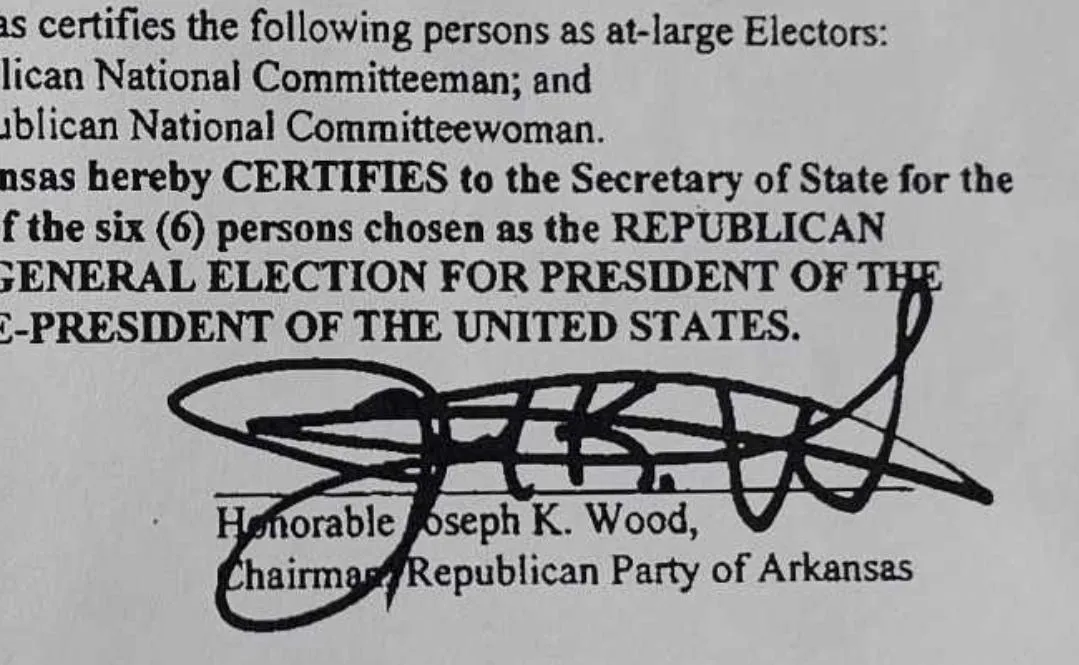 as certifies the following persons as at-large Electors:
lican National Committeeman; and
ublican National Committeewoman.
nsas hereby CERTIFIES to the Secretary of State for the
f the six (6) persons chosen as the REPUBLICAN
GENERAL ELECTION FOR PRESIDENT OF THE
E-PRESIDENT OF THE UNITED STATES.
Honorable Joseph K. Wood,
Chairman, Republican Party of Arkansas